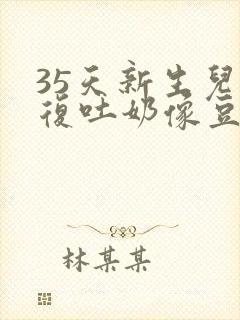 35天新生兒
復吐奶像豆
林某某